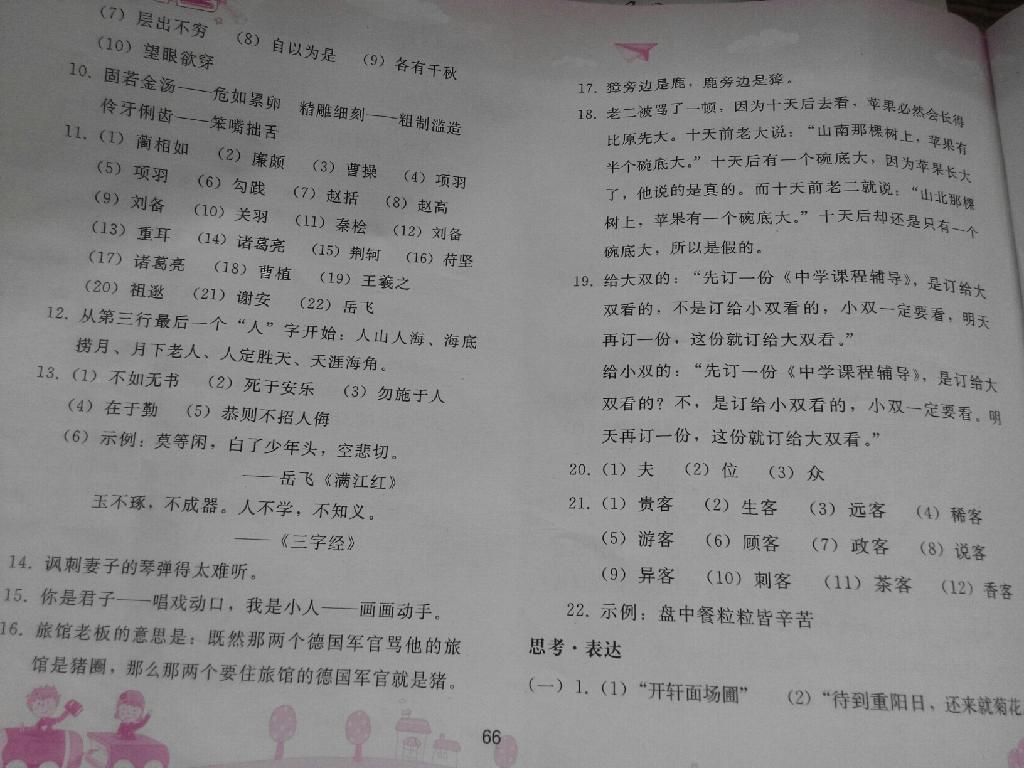 （7）层出不穷 （8）自以为是 （9）各有千秋
（10）望眼欲穿
10. 固若金汤——危如累卵 精雕细刻——粗制滥造
伶牙俐齿——笨嘴拙舌
11.（1）蔺相如 （2）廉颇 （3）曹操 （4）项羽
（5）项羽 （6）勾践 （7）赵括 （8）赵高
（9）刘备 （10）关羽 （11）秦桧 （12）刘备
（13）重耳 （14）诸葛亮 （15）荆轲 （16）苻坚
（17）诸葛亮 （18）曹植 （19）王羲之
（20）祖逖 （21）谢安 （22）岳飞
12. 从第三行最后一个“人”字开始：人山人海、海底
捞月、月下老人、人定胜天、天涯海角。
13.（1）不如无书 （2）死于安乐 （3）勿施于人
（4）在于勤 （5）恭则不招人侮
（6）示例：莫等闲，白了少年头，空悲切。
——岳飞《满江红》
玉不琢，不成器。人不学，不知义。
——《三字经》
14. 讽刺妻子的琴弹得太难听。
15. 你是君子——唱戏动口，我是小人——画画动手。
16. 旅馆老板的意思是：既然那两个德国军官骂他的旅
馆是猪圈，那么那两个要住旅馆的德国军官就是猪。
17. 獐旁边是鹿，鹿旁边是獐。
18. 老二被骂了一顿，因为十天后去看，苹果必然会长得
比原先大。十天前老大说：“山南那棵树上，苹果有
半个碗底大。”十天后有一个碗底大，因为苹果长大
了，他说的是真的。而十天前老二就说：“山北那棵
树上，苹果有一个碗底大。”十天后却还是只有一个
碗底大，所以是假的。
19. 给大双的：“先订一份《中学课程辅导》，是订给大
双看的，不是订给小双看的，小双一定要看，明天
再订一份，这份就订给大双看。”
给小双的：“先订一份《中学课程辅导》，是订给大
双看的？不，是订给小双看的，小双一定要看。明
天再订一份，这份就订给大双看。”
20.（1）夫 （2）位 （3）众
21.（1）贵客 （2）生客 （3）远客 （4）稀客
（5）游客 （6）顾客 （7）政客 （8）说客
（9）异客 （10）刺客 （11）茶客 （12）香客
22. 示例：盘中餐粒粒皆辛苦
思考·表达
（一）1.（1）“开轩面场圃” （2）“待到重阳日，还来就菊花
66